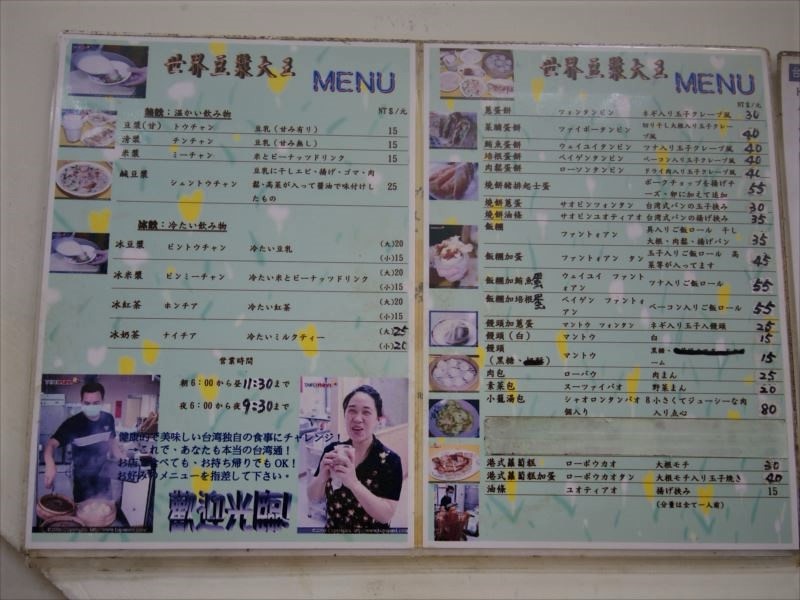 世界豆漿大王 MENU
NT$/元
熱飲：温かい飲み物
豆漿(甘) トウチャン 豆乳(甘み有り) 15
清漿 チンチャン 豆乳(甘み無し) 15
米漿 ミーチャン 米とピーナッツドリンク 15
鹹豆漿 シェントウチャン 豆乳に干しエビ・揚げ・ゴマ・肉
鬆・高菜が入って醤油で味付けし 25
たもの
冰飲：冷たい飲み物
冰豆漿 ピントウチャン 冷たい豆乳 (大)20
(小)15
冰米漿 ピンミーチャン 冷たい米とピーナッツドリンク (大)20
(小)15
冰紅茶 ホンチア 冷たい紅茶 (大)20
(小)15
冰奶茶 ナイチア 冷たいミルクティー (大)25
(小)20
営業時間
朝6:00から昼11:30まで
夜6:00から夜9:30まで
健康的で美味しい台湾独自の食事にチャレンジ！
→これで、あなたも本当の台湾通！
お店で食べても、お持ち帰りでもOK！
お好みのメニューを指差して下さい。
歡迎光臨
世界豆漿大王 MENU
NT$/元
蔥蛋餅 ツォンタンピン ネギ入り玉子クレープ風 30
菜脯蛋餅 ツァイポータンピン 切り干し大根入り玉子クレー
プ風 40
鮪魚蛋餅 ウェイユイタンピン ツナ入り玉子クレープ風 40
培根蛋餅 ペイゲンタンピン ベーコン入り玉子クレープ風 40
肉鬆蛋餅 ローソンタンピン ドライ肉入り玉子クレープ風
燒餅豬排起士蛋 ポークチョップを揚げチ
ーズ・卵に加えて追加 55
燒餅蔥蛋 サオピンツォンタン 台湾式パンの玉子挟み 30
燒餅油條 サオピンユオティアオ 台湾式パンの揚げ挟み 35
飯糰 ファントォアン 具入りご飯ロール 干し
大根・肉鬆・揚げパン 35
飯糰加蛋 ファントォアン タン 玉子入りご飯ロール 高
菜等が入ってます 45
飯糰加鮪魚蛋 ウェイユイ ファント
ォアン ツナ入りご飯ロール 55
飯糰加培根蛋 ペイゲン ファントォ
アン ベーコン入りご飯ロール 55
饅頭加蔥蛋 マントウ ツォンタン ネギ入り玉子入饅頭 25
饅頭(白) マントウ 白 15
饅頭
(黒糖・ マントウ 黒糖・
ーム 15
肉包 ローパウ 肉まん 25
素菜包 スーツァイパオ 野菜まん 20
小籠湯包 シャオロンタンパオ 8 小さくてジューシーな肉
個入り 入り点心 80
港式蘿蔔糕 ローボウカオ 大根モチ 30
港式蘿蔔糕加蛋 ローボウカオタン 大根モチ入り玉子焼き 40
油條 ユオティアオ 揚げ挟み 15
(分量は全て一人前)